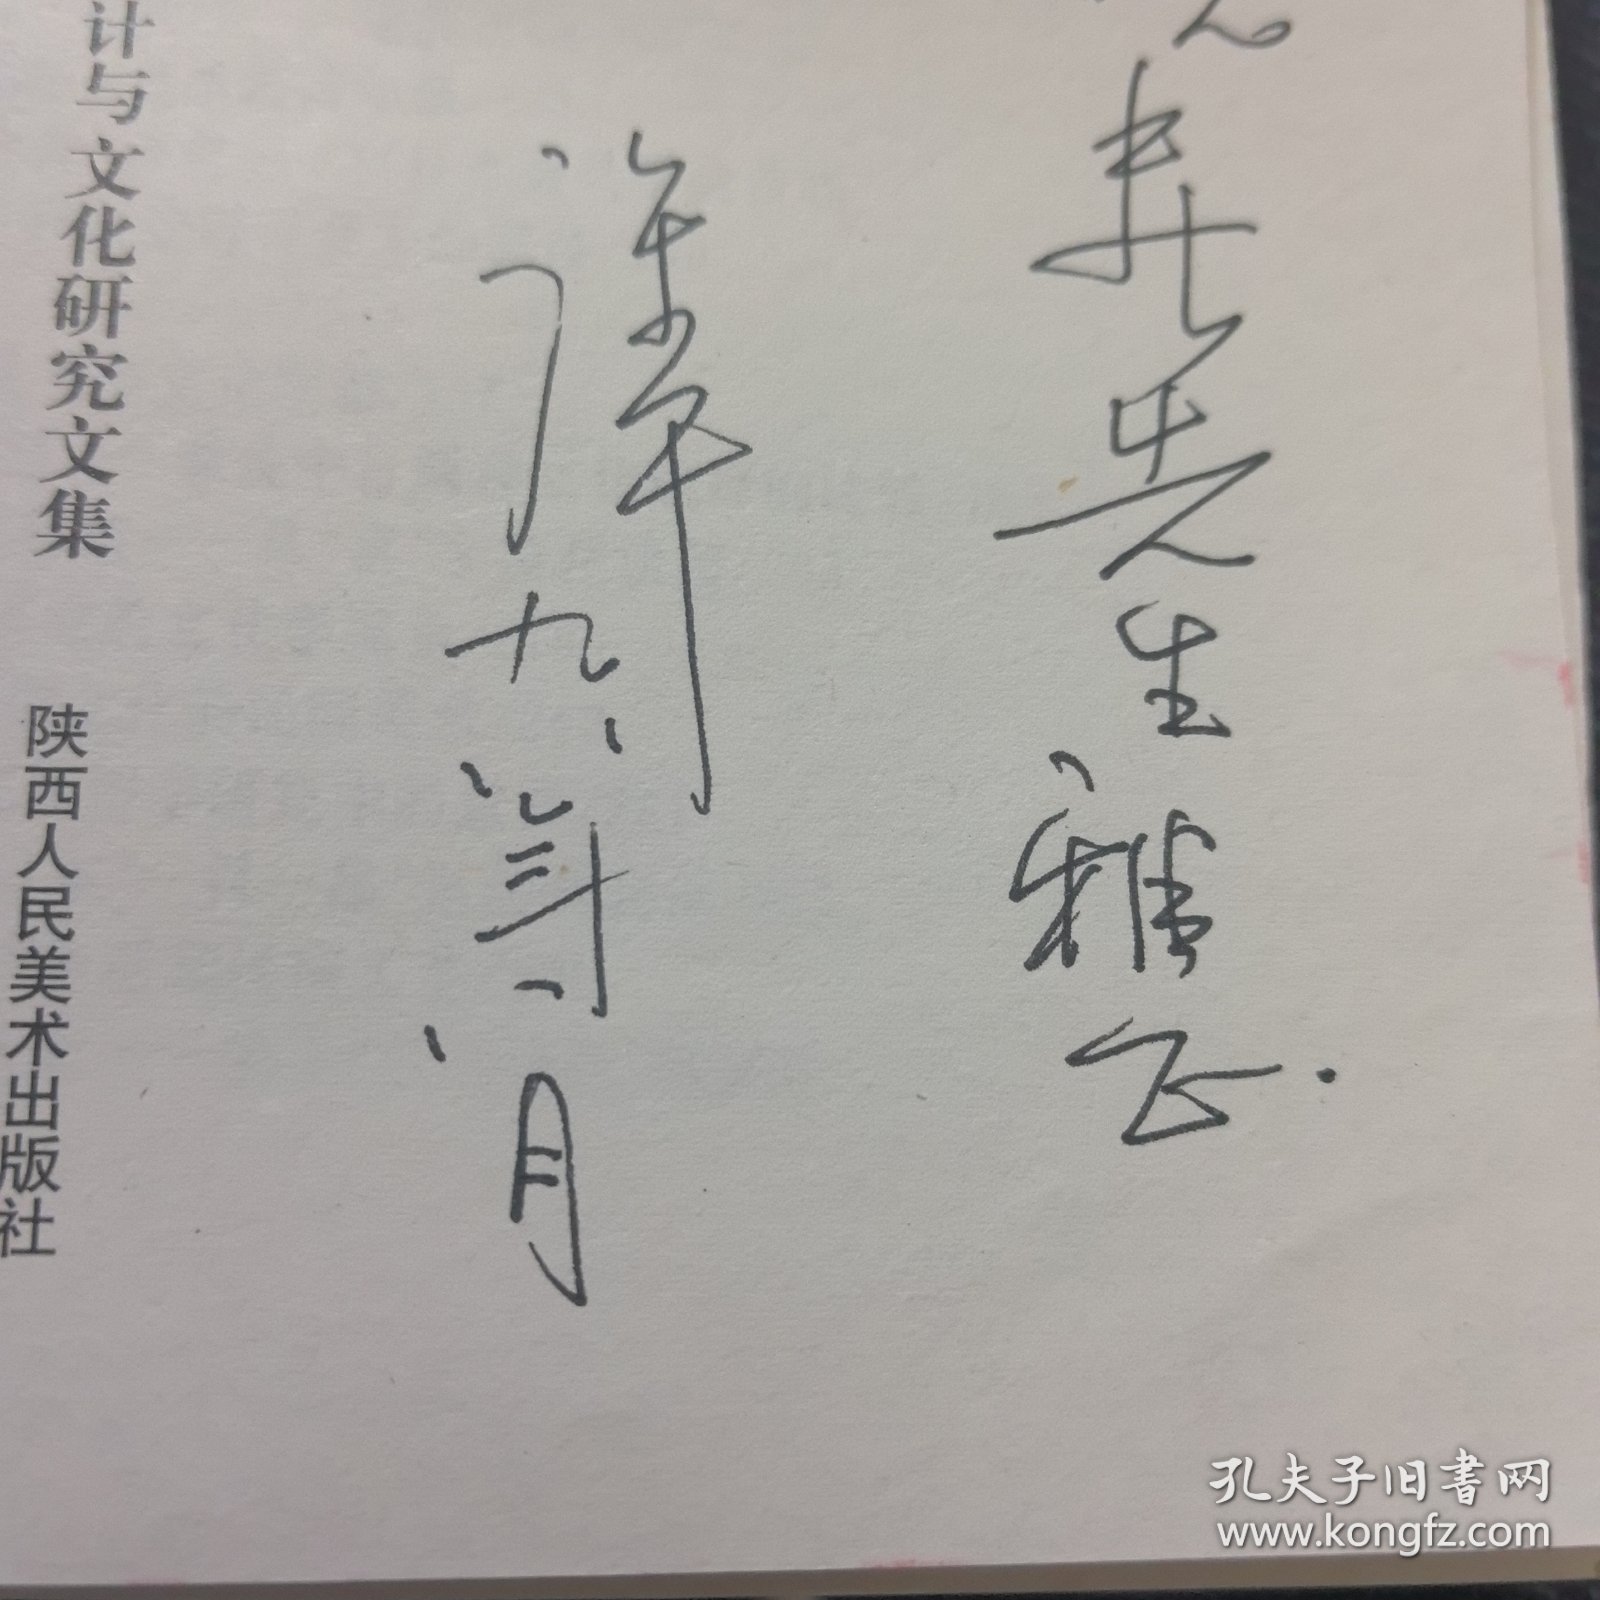 先生雅正.
九八年八月
计与文化研究文集
陕西人民美术出版社
孔夫子旧书网
www.kongfz.com